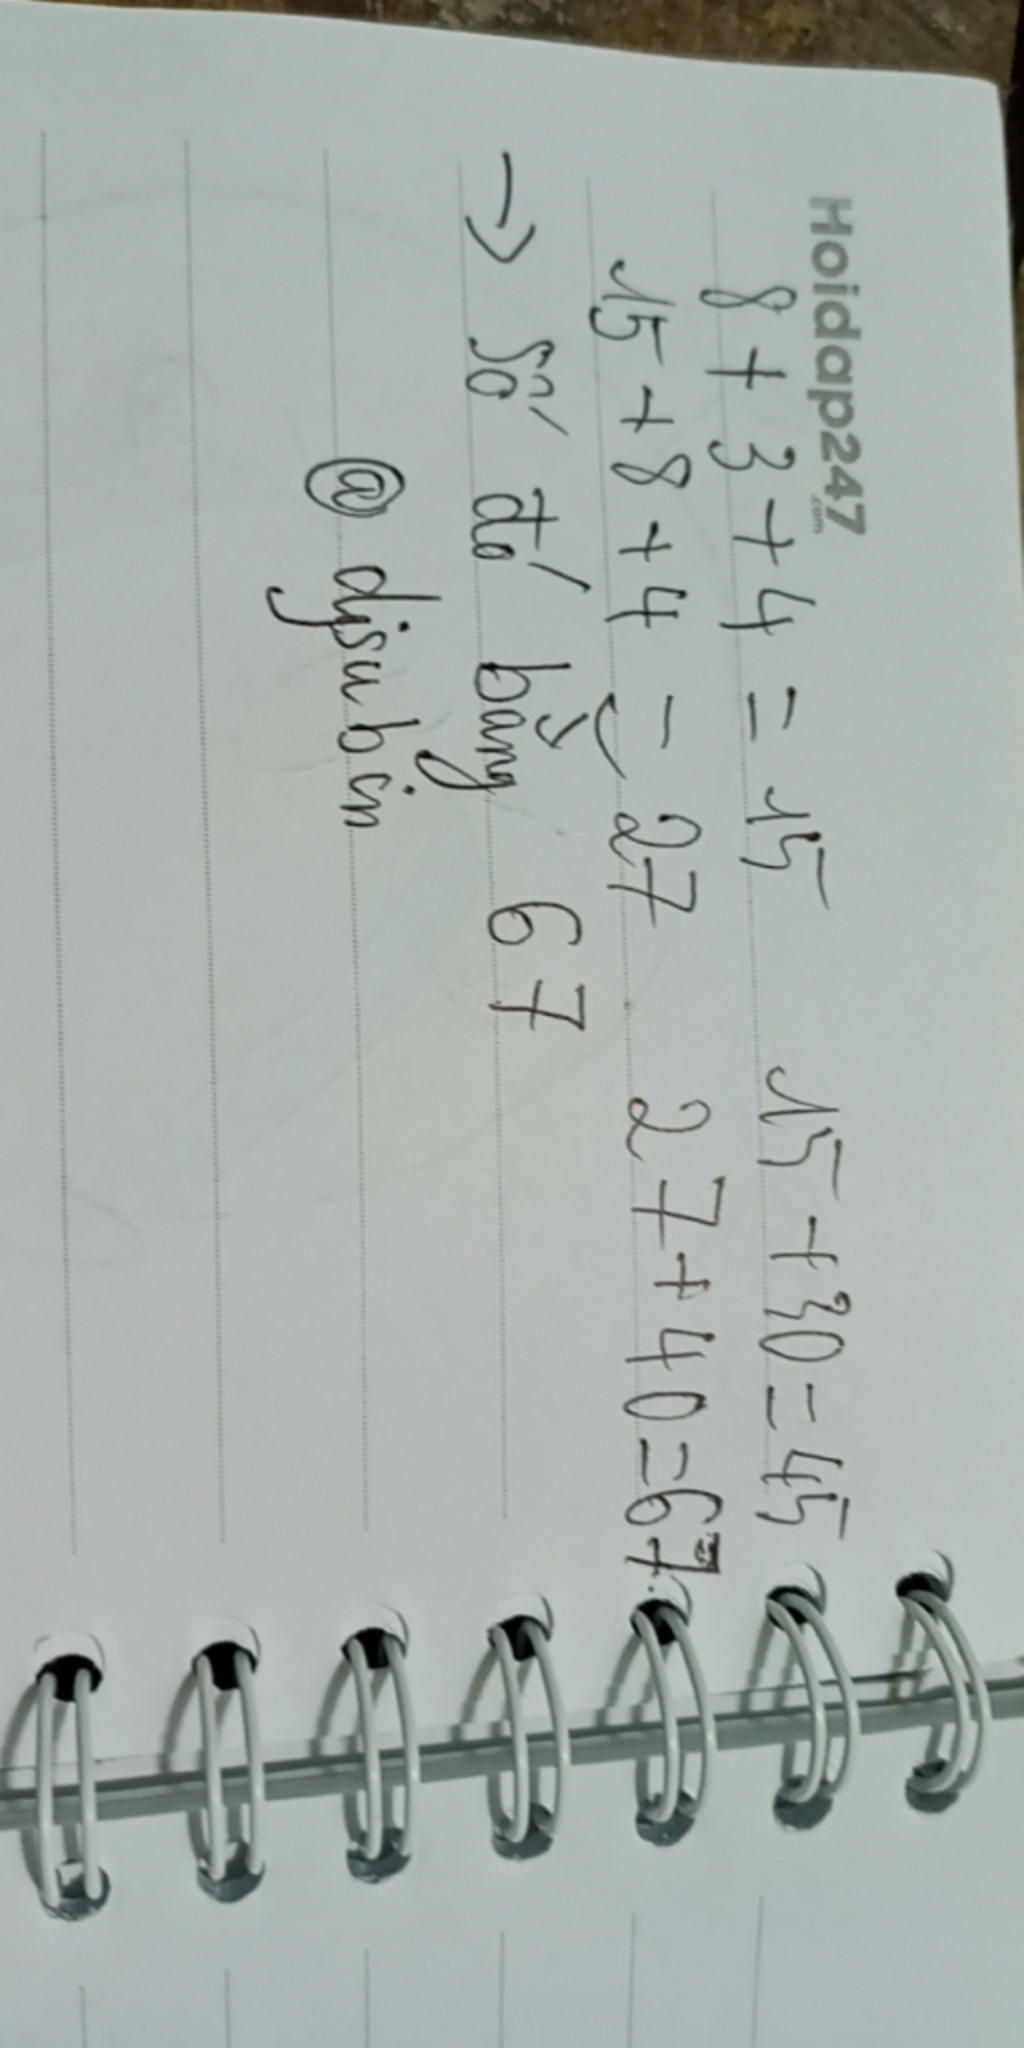 Hoidap247
.com
8 + 3 + 4 = 15 15 + 30 = 45
15 + 8 + 4 = 27 27 + 40 = 67
→ Số đó bằng 67
@djsubin